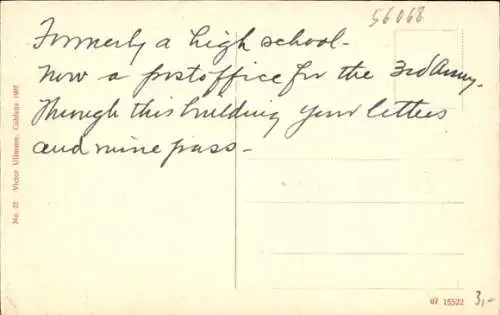 56068
Formerly a high school -
Now a postoffice for the 3rd Army.
Through this building your letters
and mine pass -
No. 27. Victor Ullmann, Coblenz 1907
15522
3,-